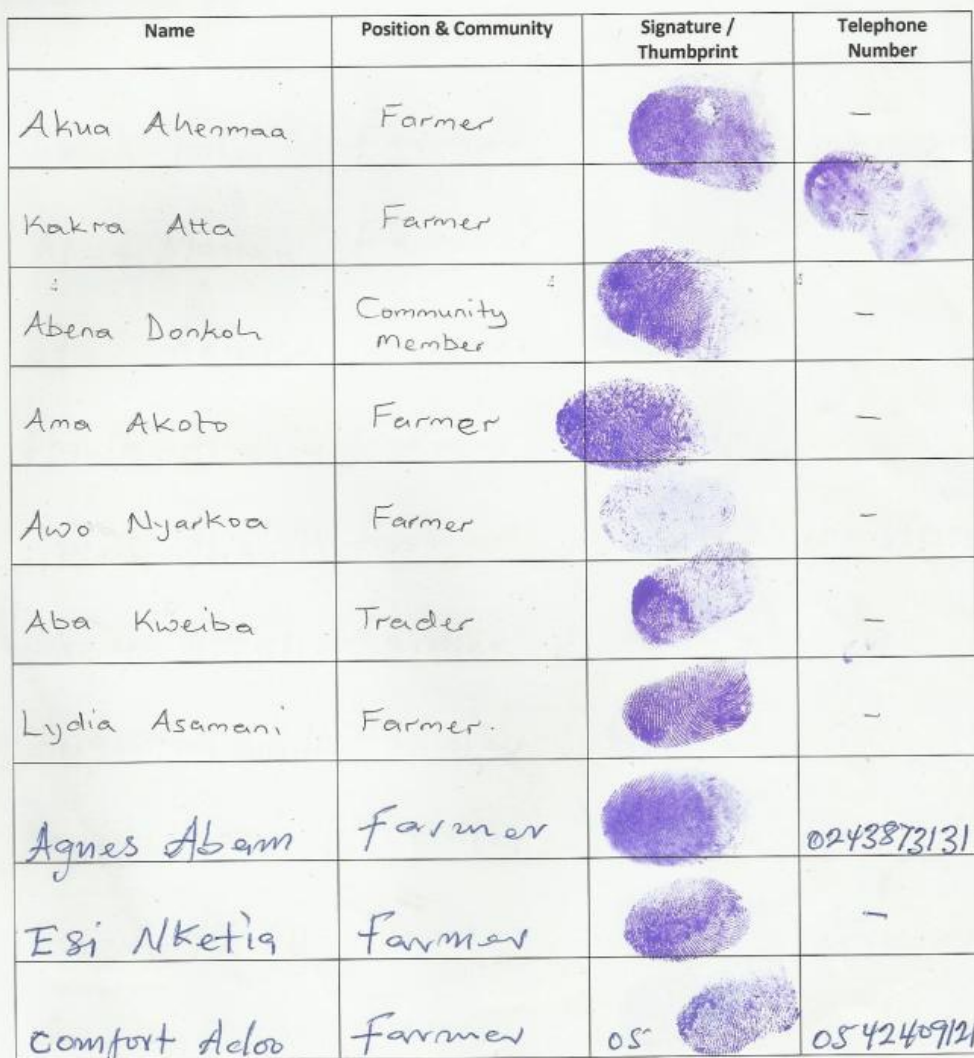 Name Position & Community Signature / Thumbprint Telephone Number
Akua Ahenmaa Farmer —
Kakra Atta Farmer –
Abena Donkoh Community Member —
Ama Akoto Farmer —
Awo Nyarkoa Farmer —
Aba Kweiba Trader —
Lydia Asamani Farmer. —
Agnes Abam Farmer 0243873131
Esi Nketia Farmer —
Comfort Adoo Farmer 05 054240912